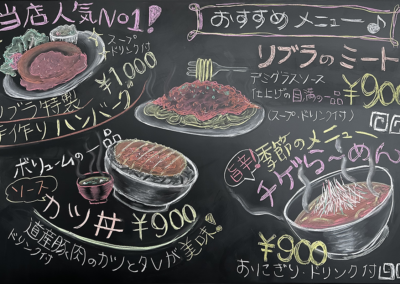 当店人気No1!
スープ
ドリンク付
¥1,000
リブラ特製
手作りハンバーグ
おすすめ メニュー♪
リブラのミート
デミグラスソース
仕上げの自慢の一品
¥900
(スープ・ドリンク付)
ボリュームの一品
ソース
カツ丼 ¥900
道産豚肉のカツとタレが美味!
ドリンク付
旨辛!
季節のメニュー
チゲらーめん
¥900
おにぎり・ドリンク付